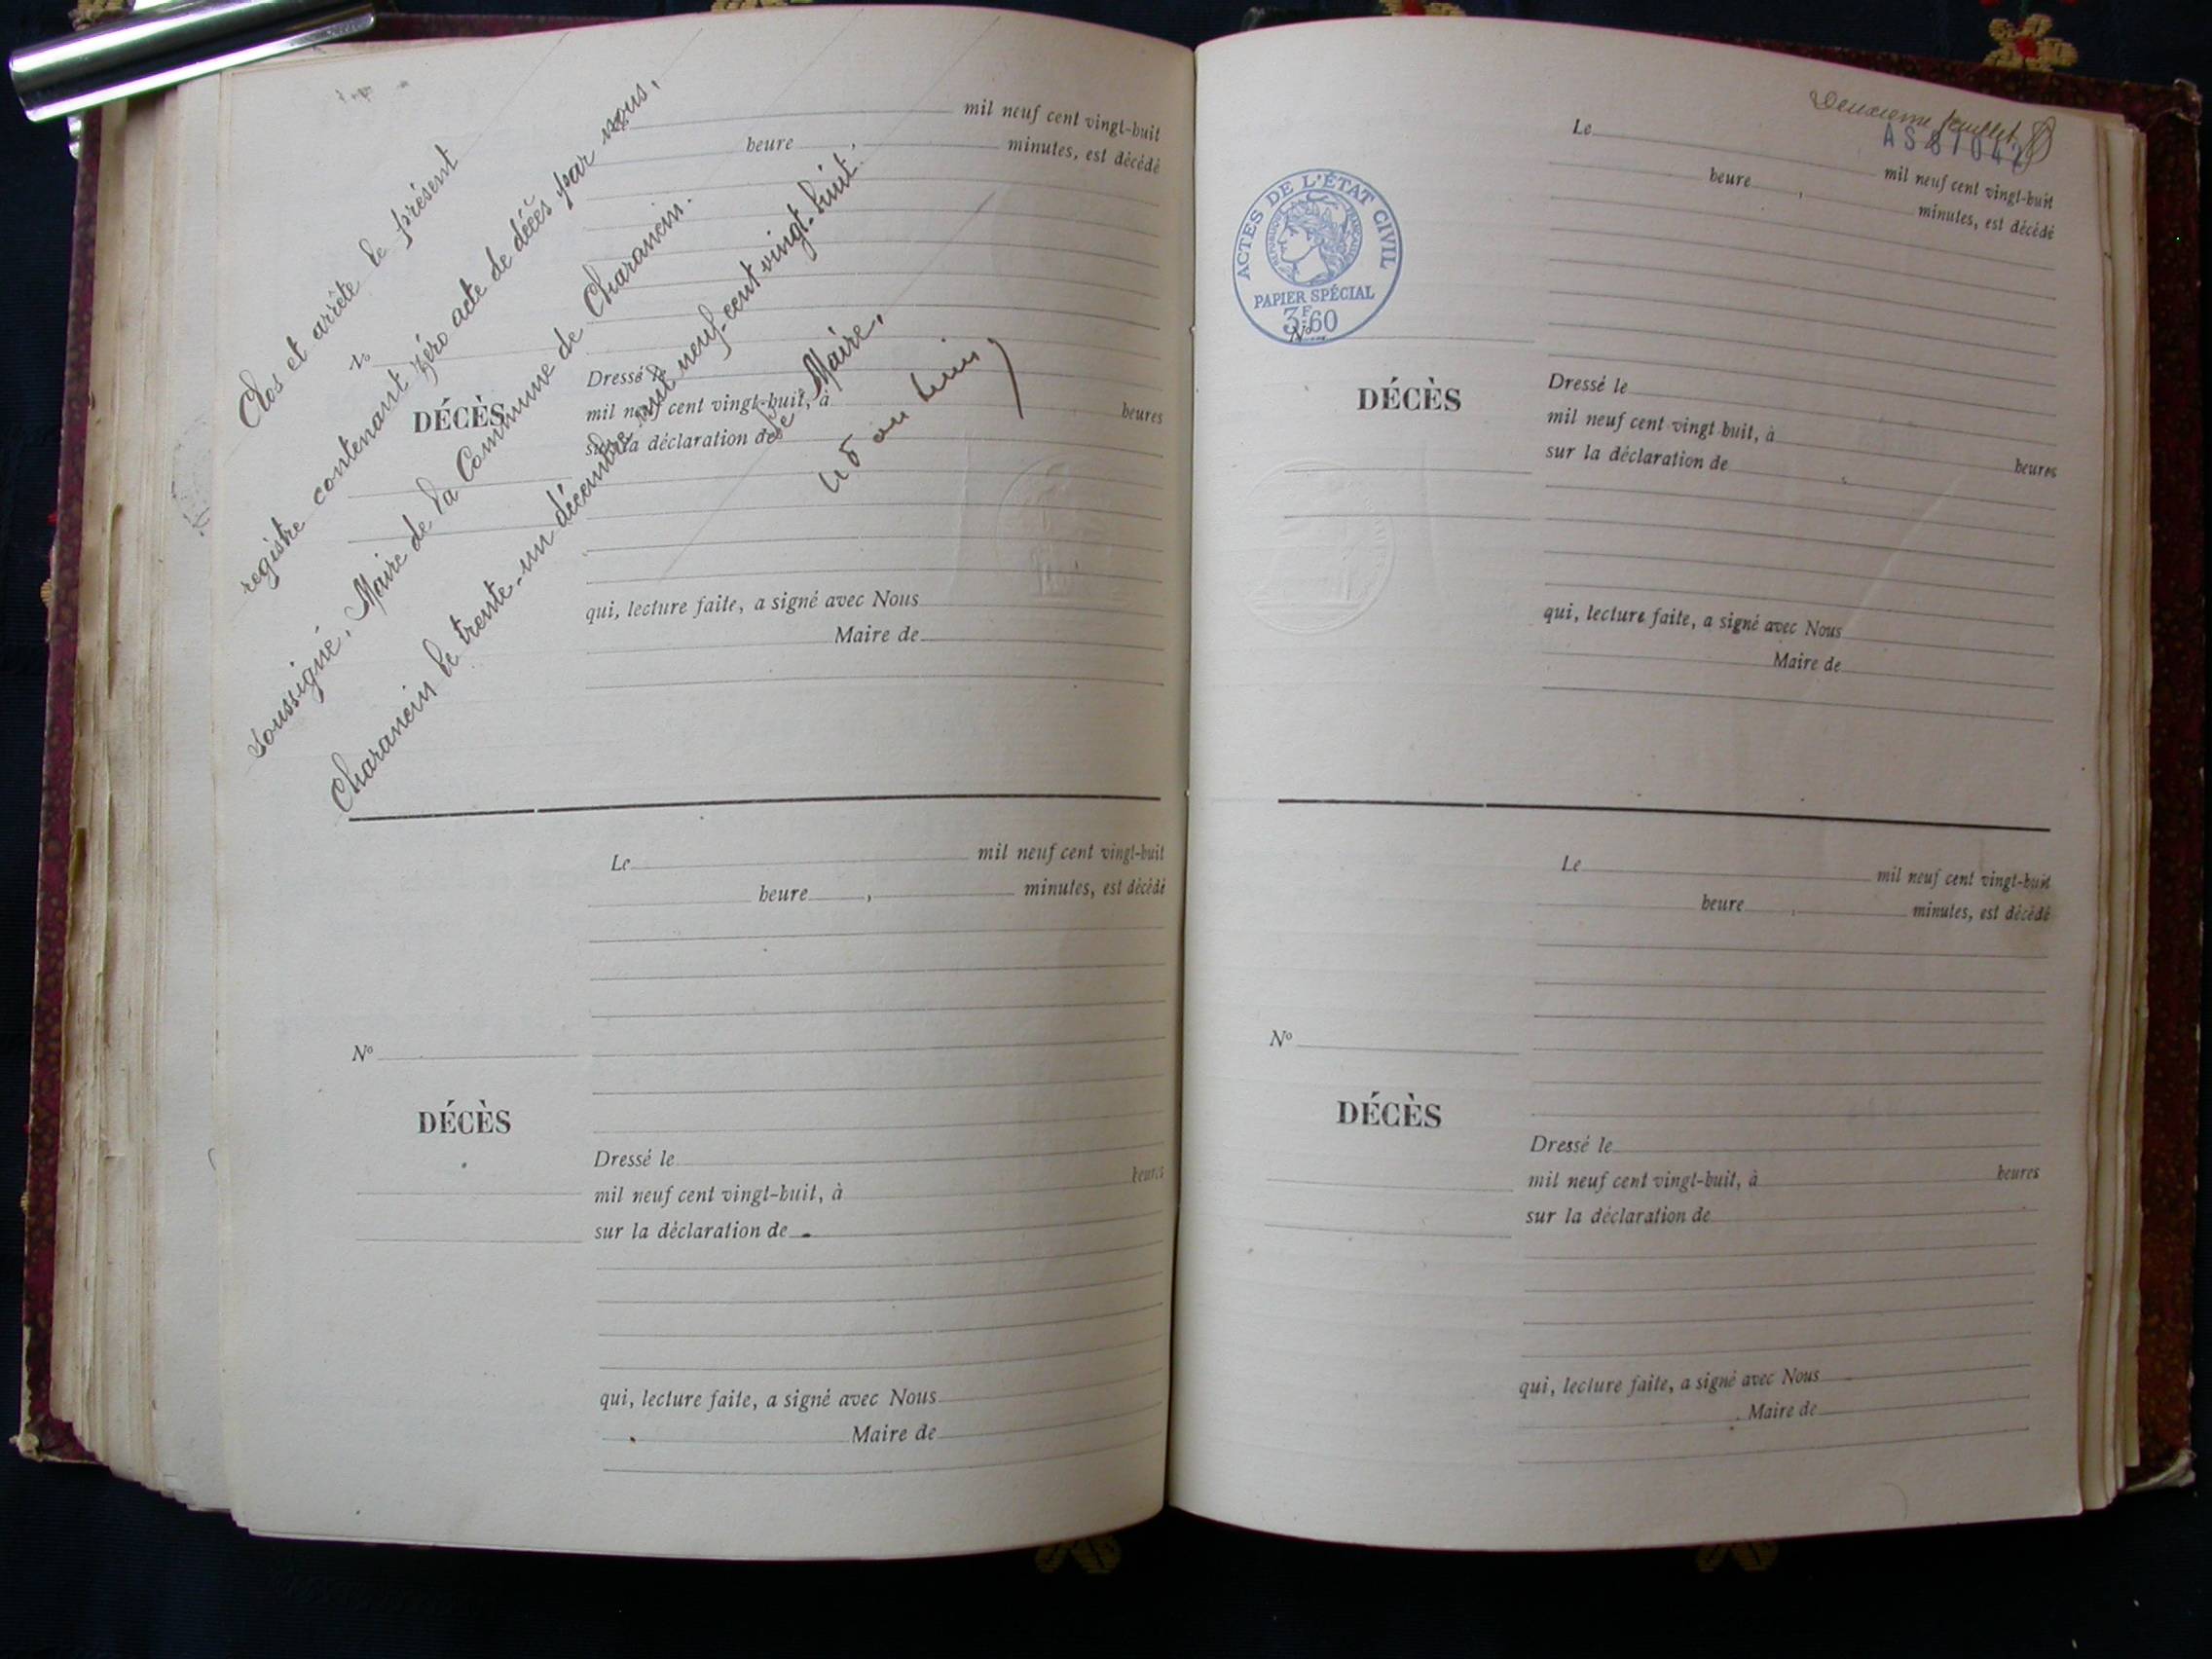 Clos et arrêté le présent
registre contenant zéro acte de décès par nous,
soussigné, Maire de la Commune de Charancin.
Charancin le trente-un décembre mil neuf-cent vingt-huit.
Le Maire,
mil neuf cent vingt-huit
heure , minutes, est décédé
N°
DÉCÈS
Dressé le
mil neuf cent vingt-huit, à heures
sur la déclaration de
qui, lecture faite, a signé avec Nous
Maire de
Le mil neuf cent vingt-huit
heure , minutes, est décédé
N°
DÉCÈS
Dressé le
mil neuf cent vingt-huit, à heures
sur la déclaration de
qui, lecture faite, a signé avec Nous
Maire de
Deuxième feuillet
ACTES DE L'ÉTAT CIVIL
RÉPUBLIQUE FRANÇAISE
PAPIER SPÉCIAL
3F.60
Le mil neuf cent vingt-huit
heure , minutes, est décédé
N°
DÉCÈS
Dressé le
mil neuf cent vingt huit, à heures
sur la déclaration de
qui, lecture faite, a signé avec Nous
Maire de
Le mil neuf cent vingt-huit
heure , minutes, est décédé
N°
DÉCÈS
Dressé le
mil neuf cent vingt-huit, à heures
sur la déclaration de
qui, lecture faite, a signé avec Nous
Maire de